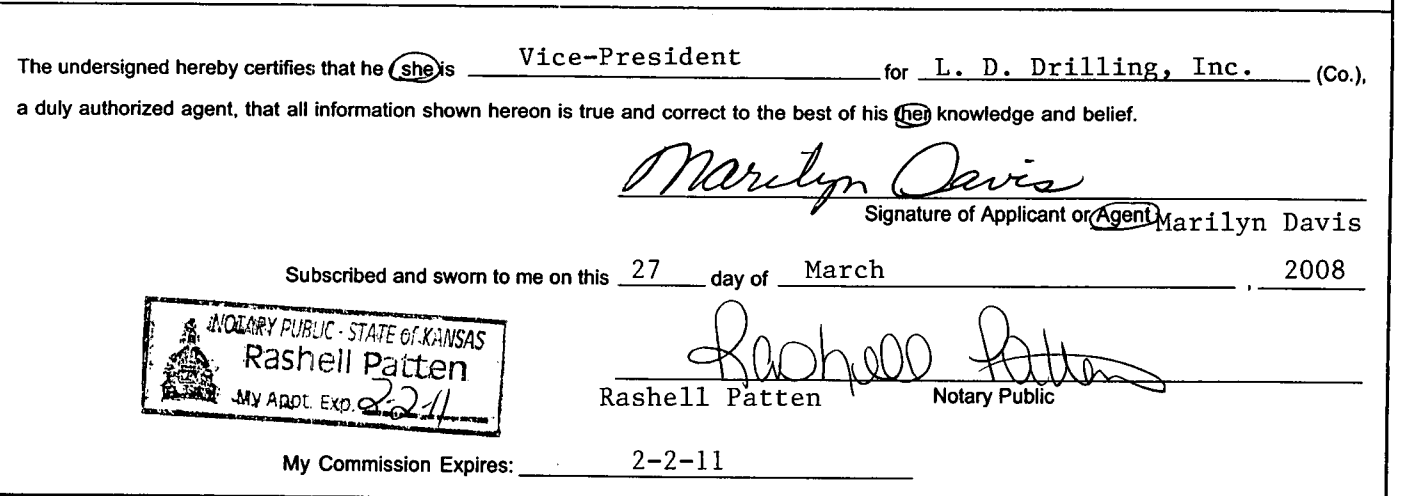 The undersigned hereby certifies that he (she) is Vice-President for L. D. Drilling, Inc. (Co.),
a duly authorized agent, that all information shown hereon is true and correct to the best of his (her) knowledge and belief.
Marilyn Davis
Signature of Applicant or Agent Marilyn Davis
Subscribed and sworn to me on this 27 day of March , 2008
NOTARY PUBLIC - STATE OF KANSAS
Rashell Patten
My Appt. Exp. 2-2-11
Rashell Patten
Rashell Patten Notary Public
My Commission Expires: 2-2-11